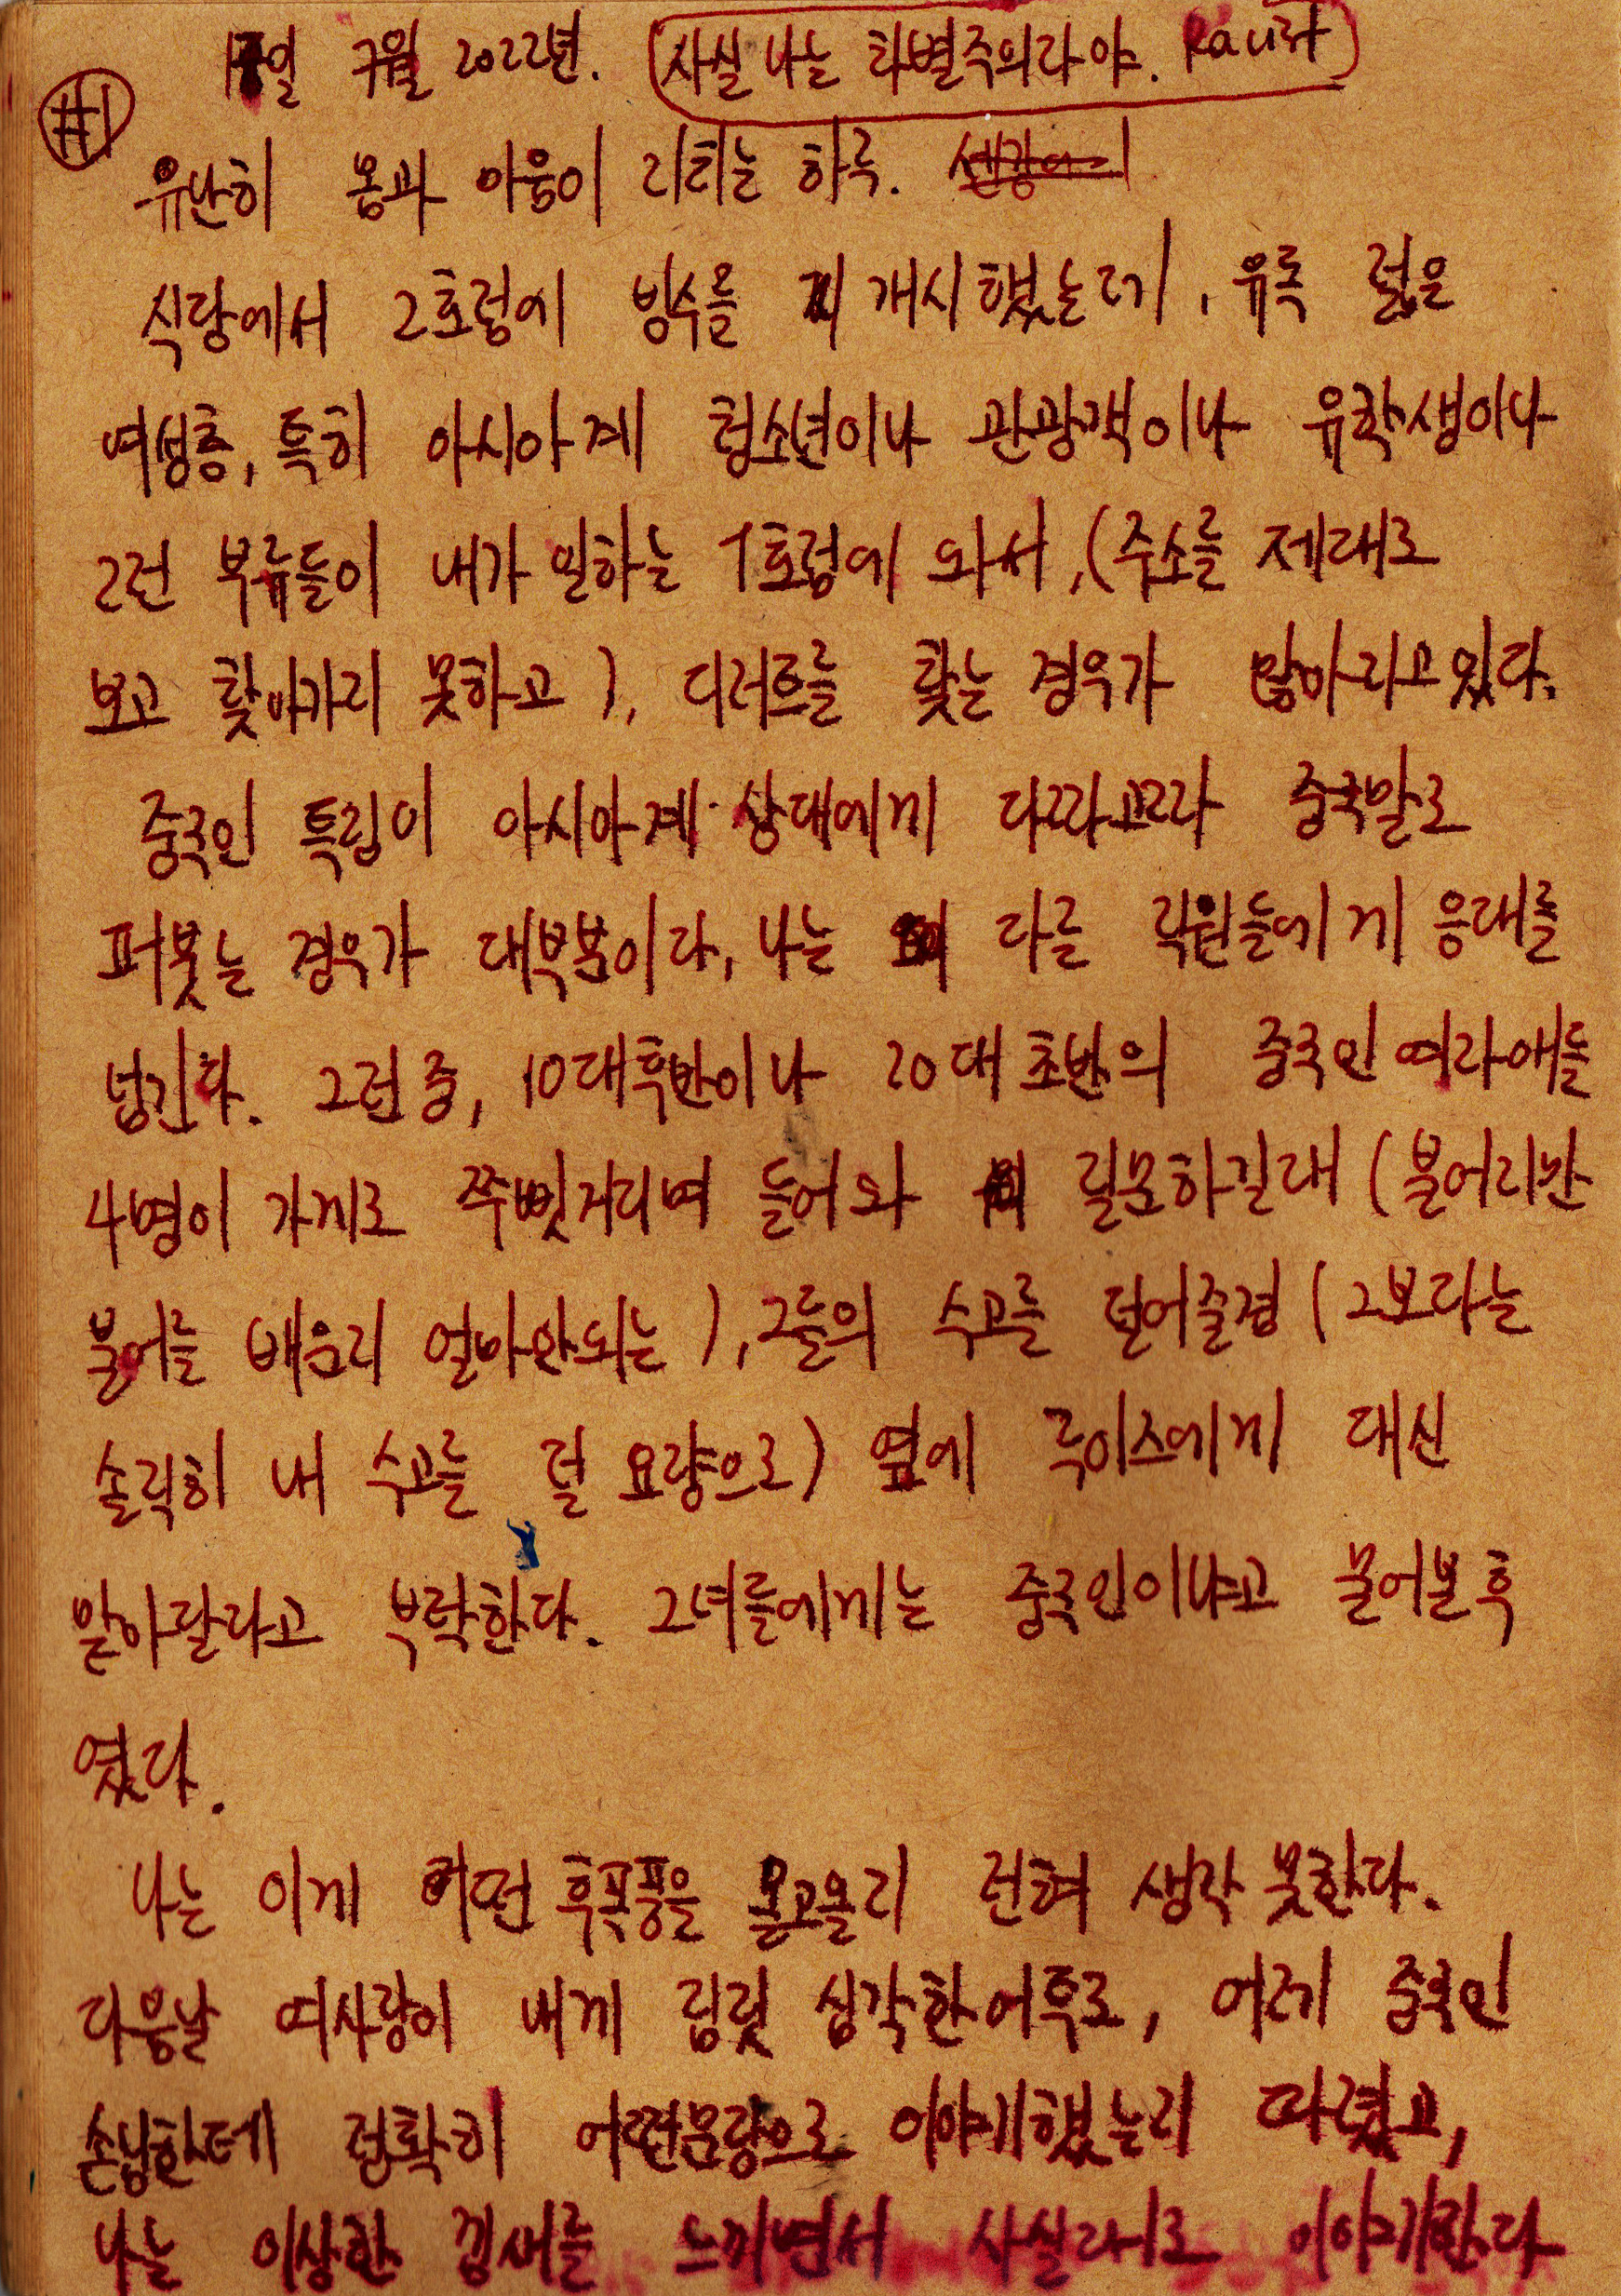 17일 7월 2022년. (사실 나는 차별주의자야.
#1
유난히 몸과 마음이 지치는 하루.
식당에서 2호점에 빙수를 개시했는데, 유독 젊은
여성층, 특히 아시아계 청소년이나 관광객이나 유학생이나
그런 부류들이 내가 일하는 1호점에 와서, (주소를 제대로
보고 찾아가지 못하고), 디저트를 찾는 경우가 많아지고있다.
중국인 특징이 아시아계 상대에게 다짜고짜 중국말로
퍼붓는 경우가 대부분이라, 나는 다른 직원들에게 응대를
넘긴다. 그런 중, 10대후반이나 20대 초반의 중국인 여자애들
4명이 가게로 쭈뼛거리며 들어와 질문하길래 (불어지만
불어를 배운지 얼마안되는), 그들의 수고를 덜어줄겸 (그보다는
솔직히 내 수고를 덜 요량으로) 옆에 루이스에게 대신
맡아달라고 부탁한다. 그녀들에게는 중국인이냐고 물어본 후
였다.
나는 이게 어떤 후폭풍을 몰고올지 전혀 생각 못한다.
다음날 여사장이 내게 짐짓 심각한어투로, 어제 중국인
손님한테 정확히 어떤문장으로 이야기했는지 따졌고,
나는 이상한 낌새를 느끼면서 사실대로 이야기한다